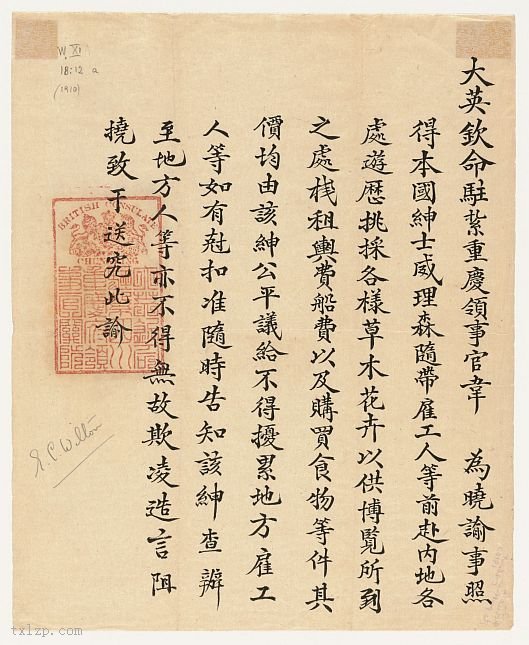 大英欽命駐紮重慶領事官韋　為曉諭事照
得本國紳士威理森隨帶雇工人等前赴內地各
處遊歷挑採各樣草木花卉以供博覽所到
之處栈租輿費船費以及購買食物等件其
價均由該紳公平議給不得擾累地方雇工
人等如有尅扣准隨時告知該紳查辦
至地方人等亦不得無故欺凌造言阻
撓致干送究此諭
BRITISH CONSULATE
E. C. Wilton
W. XI
18:12 a
(1910)
txlzp.com